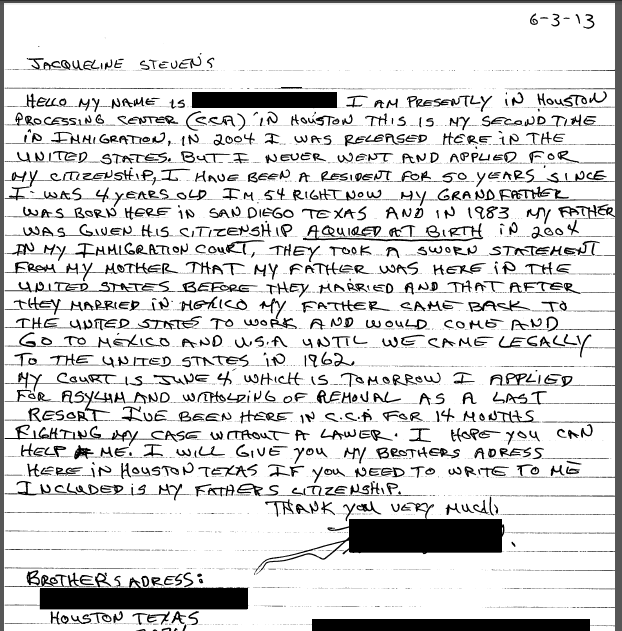 6-3-13
JACQUELINE STEVENS
HELLO MY NAME IS I AM PRESENTLY IN HOUSTON
PROCESSING CENTER (CCA) IN HOUSTON THIS IS MY SECOND TIME
IN IMMIGRATION, IN 2004 I WAS RELEASED HERE IN THE
UNITED STATES. BUT I NEVER WENT AND APPLIED FOR
MY CITIZENSHIP, I HAVE BEEN A RESIDENT FOR 50 YEARS SINCE
I WAS 4 YEARS OLD I'M 54 RIGHT NOW MY GRANDFATHER
WAS BORN HERE IN SAN DIEGO TEXAS AND IN 1983 MY FATHER
WAS GIVEN HIS CITIZENSHIP AQUIRED AT BIRTH IN 2004
IN MY IMMIGRATION COURT, THEY TOOK A SWORN STATEMENT
FROM MY MOTHER THAT MY FATHER WAS HERE IN THE
UNITED STATES BEFORE THEY MARRIED AND THAT AFTER
THEY MARRIED IN MEXICO MY FATHER CAME BACK TO
THE UNITED STATES TO WORK AND WOULD COME AND
GO TO MEXICO AND U.S.A UNTIL WE CAME LEGALLY
TO THE UNITED STATES IN 1962.
MY COURT IS JUNE 4 WHICH IS TOMORROW I APPLIED
FOR ASYLUM AND WITHOLDING OF REMOVAL AS A LAST
RESORT I'VE BEEN HERE IN C.C.A FOR 14 MONTHS
FIGHTING MY CASE WITHOUT A LAWER. I HOPE YOU CAN
HELP ME. I WILL GIVE YOU MY BROTHERS ADRESS
HERE IN HOUSTON TEXAS IF YOU NEED TO WRITE TO ME
INCLUDED IS MY FATHERS CITIZENSHIP.
THANK YOU VERY MUCH,
BROTHER'S ADRESS:
HOUSTON TEXAS